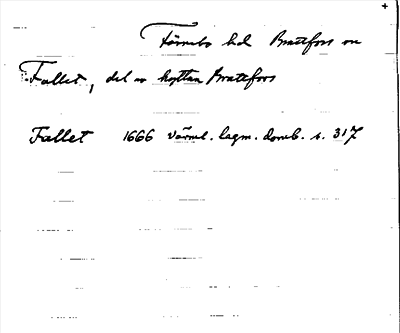 Färnebo hd Brattfors sn
Fallet, del av hyttan Brattefors
Fallet 1666 Värml. lagm. domb. s. 317